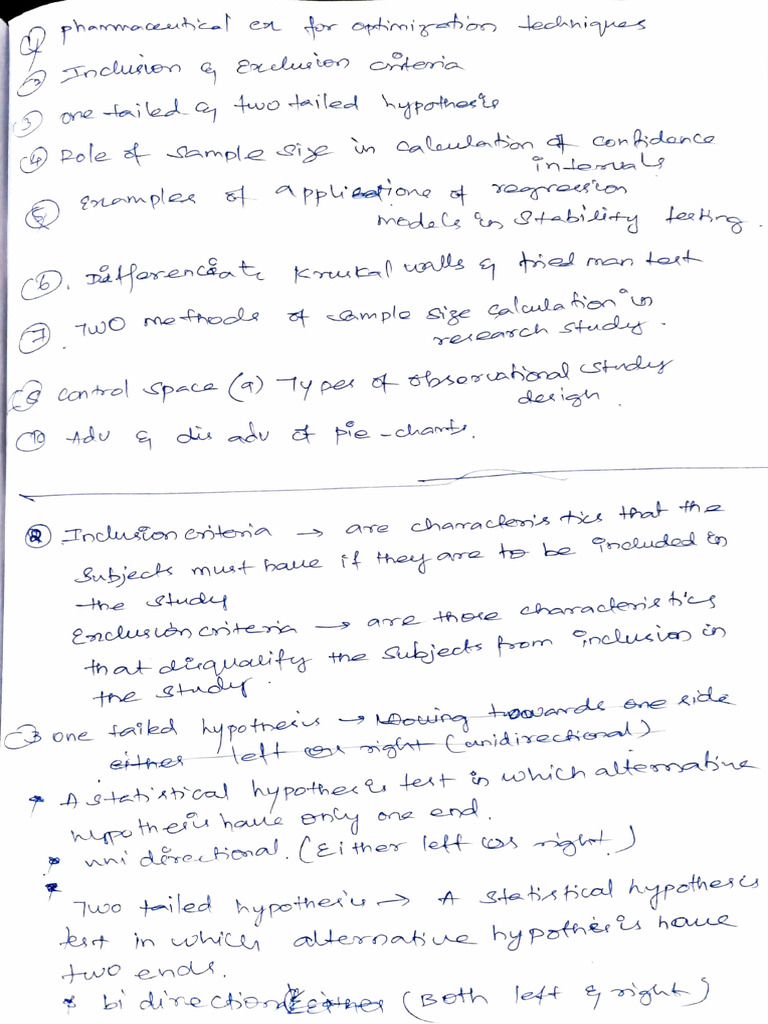 ① pharmaceutical ex for optimization techniques
② Inclusion & Exclusion criteria
③ one tailed & two tailed hypothesis
④ Role of sample size in calculation of confidence
intervals
⑤ Examples of applications of regression
models in stability testing.
⑥. Differenciate Kruskal walls & fried man test
⑦ Two methods of sample size calculation in
research study.
⑧ control space (9) Types of observational study
design.
⑩ Adv & dis adv of pie-charts.
② Inclusion criteria → are characteristics that the
subjects must have if they are to be included in
the study
Exclusion criteria → are those characteristics
that disqualify the subjects from inclusion in
the study.
③ one tailed hypothesis → Moving towards one side
either left or right (unidirectional)
* A statistical hypothesis test in which alternative
hypothesis have only one end.
* uni directional. (Either left or right)
* Two tailed hypothesis → A statistical hypothesis
test in which alternative hypothesis have
two ends.
* bi direction (Both left & right)